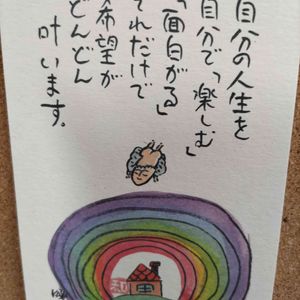 自分の人生を
自分で「楽しむ」
「面白がる」
それだけで
希望が
どんどん
叶います。